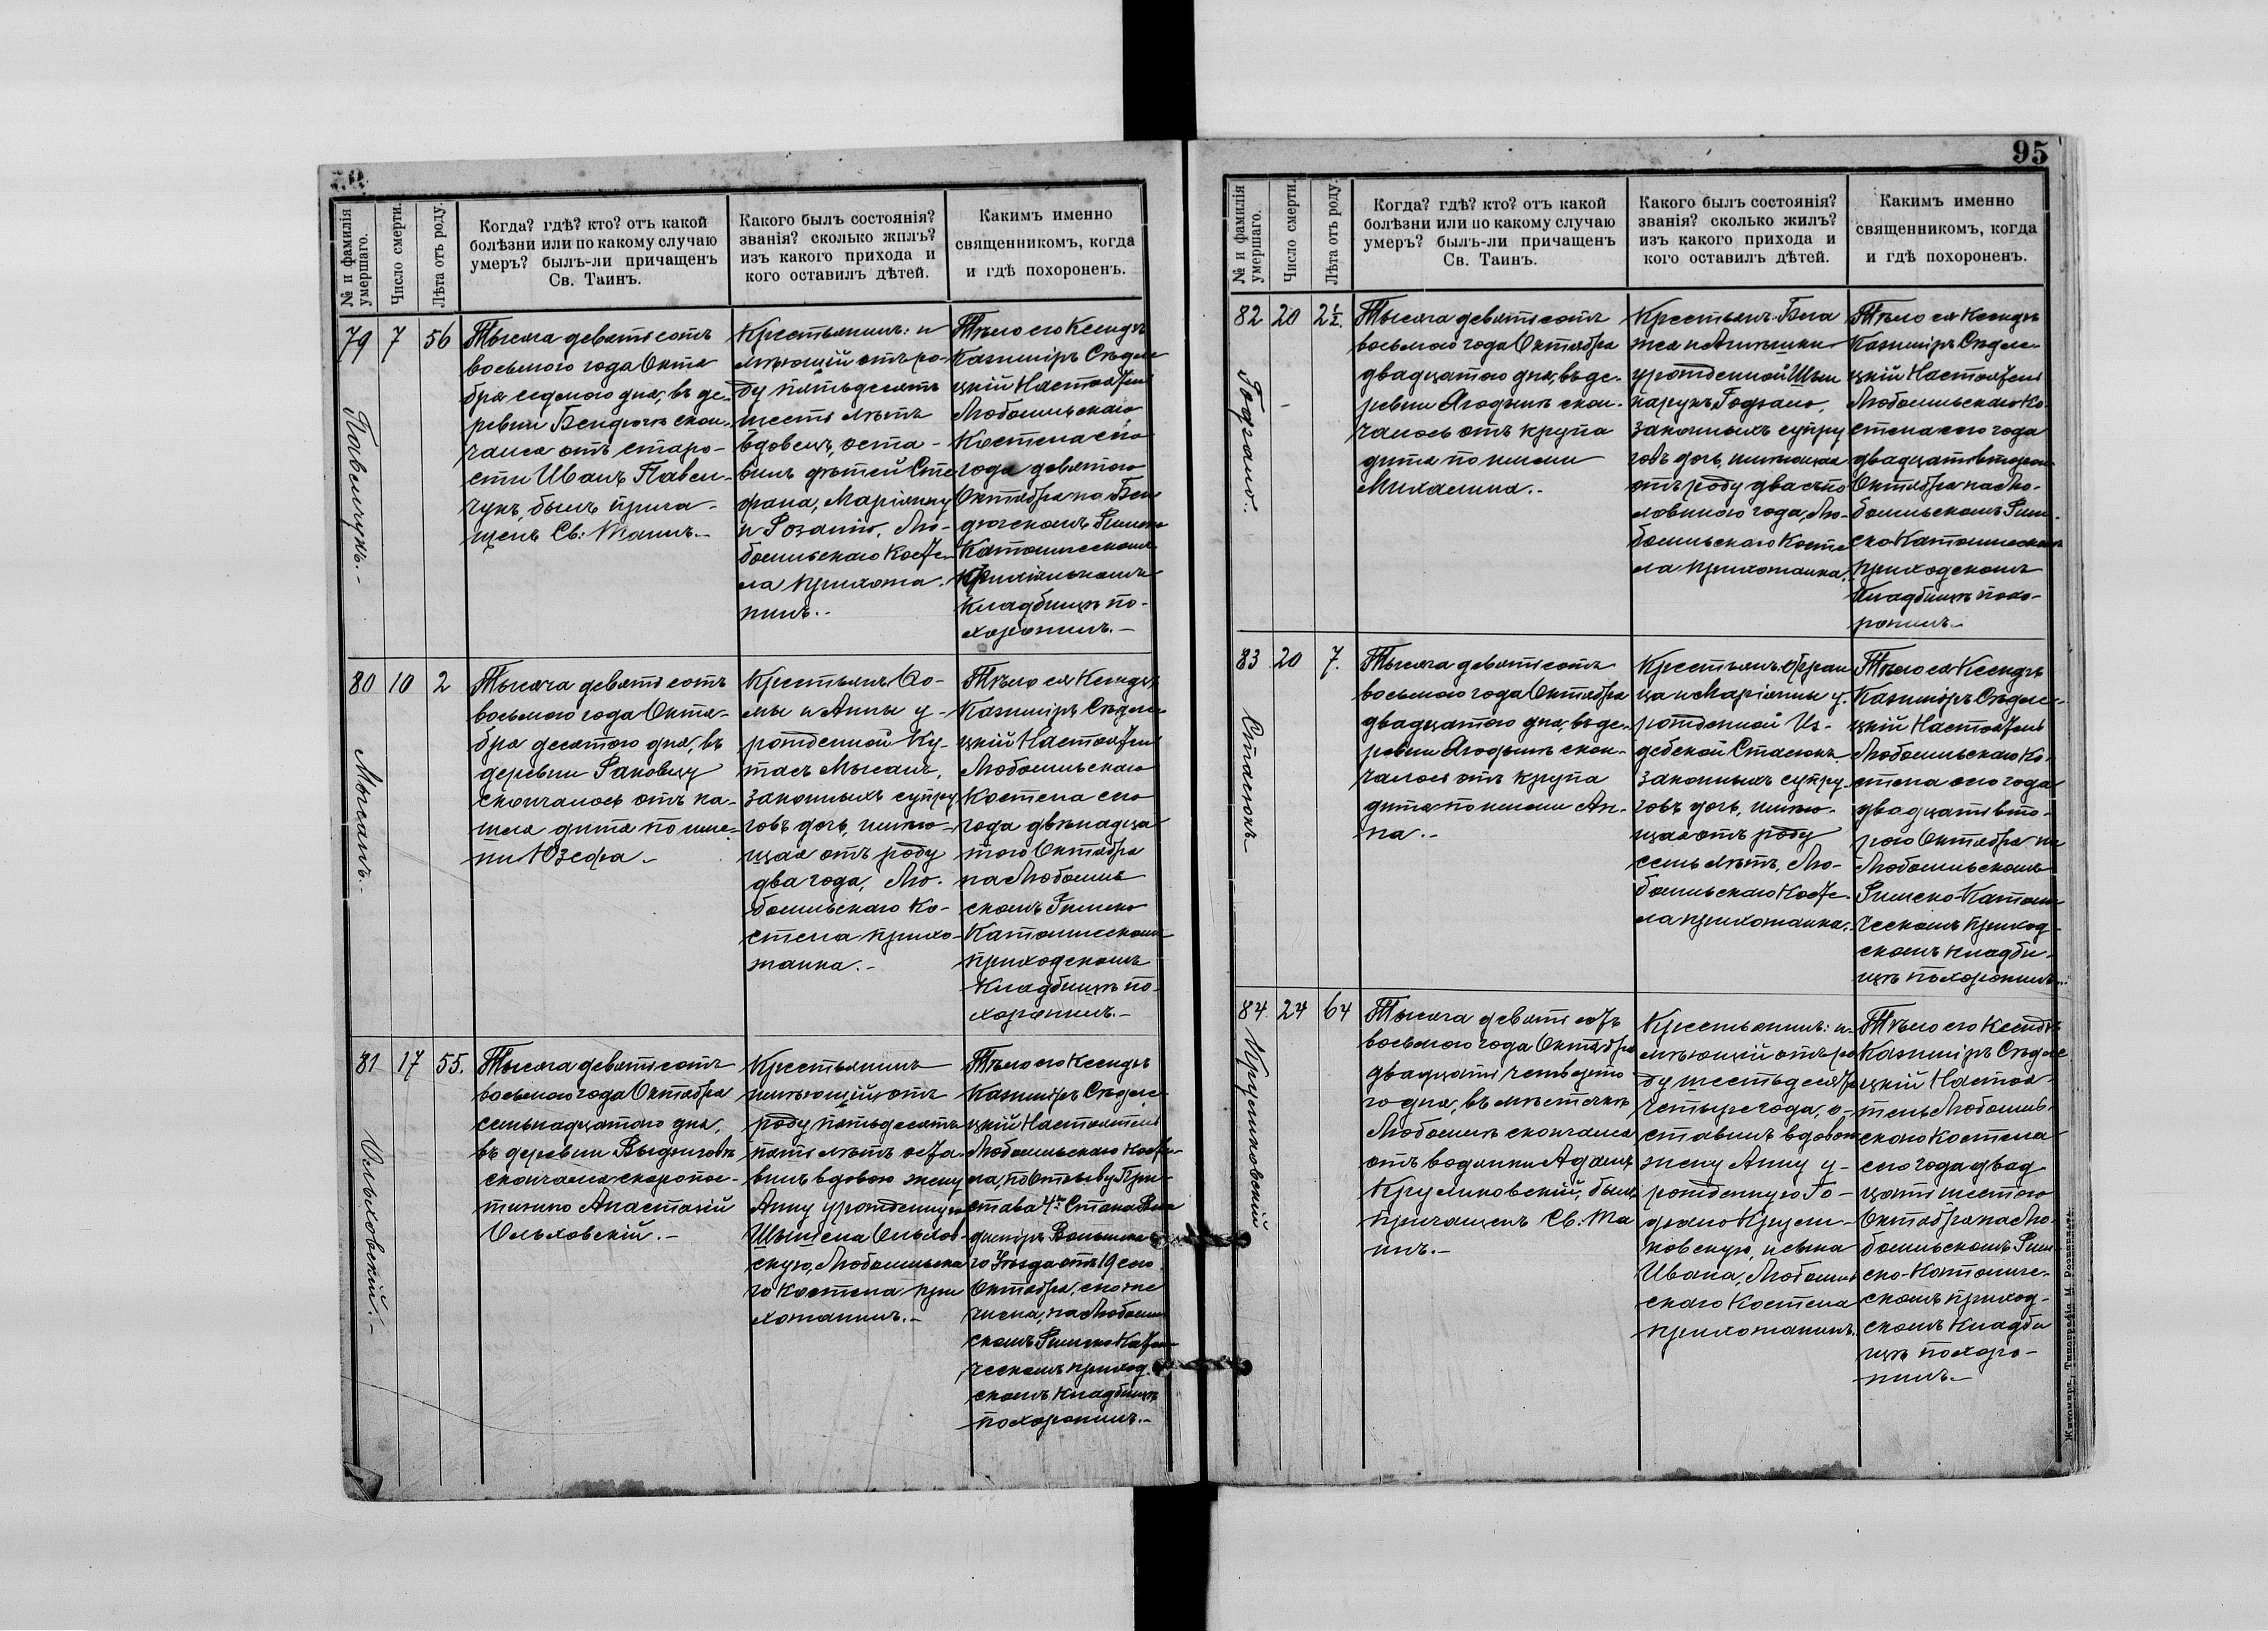 № и фамилія
умершаго.
Число смерти.
Лѣта отъ роду.
Когда? гдѣ? кто? отъ какой
болѣзни или по какому случаю
умеръ? былъ-ли причащенъ
Св. Таинъ.
Какого былъ состоянія?
званія? сколько жилъ?
изъ какого прихода и
кого оставилъ дѣтей.
Какимъ именно
священникомъ, когда
и гдѣ похороненъ.
79
Павельчукъ.-
7
56
Тысяча девятьсотъ
восьмого года Октя
бря седьмого дня, въ де-
ревни Бендюгѣ скон-
чался отъ старо-
сти Иванъ Павель-
чукъ, былъ прича-
щенъ Св: Таинъ.-
Крестьянинъ: и
мѣющій отъ ро-
ду пятьдесятъ
шесть лѣтъ
вдовецъ, оста-
вилъ дѣтей Сте
фана, Маріянну
и Розалію, Лю-
бомльскаго Косте-
ла прихожа-
нинъ.-
Тѣло его Ксендзъ
Казиміръ Сѣдле
цкій Настоятель
Любомльскаго
Костела сего
года девятого
Октября на Бен
дюжскомъ Римско
Католическомъ
Филіяльномъ
Кладбищѣ по-
хоронилъ.-
80
Мысанъ.-
10
2
Тысяча девятьсотъ
восьмого года Октя-
бря десятого дня, въ
деревни Раковцу
скончалось отъ ка-
шля дитя по име-
ни Юзефа.-
Крестьянъ Ѳо-
мы и Анны у-
рожденной Ку-
тасъ Мысанъ,
законныхъ супру
говъ дочь, имѣю-
щая отъ роду
два года, Лю-
бомльскаго Ко-
стела прихо-
жанка.-
Тѣло ея Ксендзъ
Казиміръ Сѣдле
цкій Настоятель
Любомльскаго
Костела сего
года двѣнадца
того Октября
на Любомль
скомъ Римско
Католическомъ
приходскомъ
Кладбищѣ по-
хоронилъ.-
81
Ольховскій.-
17
55.
Тысяча девятьсотъ
восьмого года Октября
семьнадцатого дня,
въ деревни
скончался скоропос-
тижно Анастазій
Ольховскій.-
Крестьянинъ
имѣющій отъ
роду пятьдесятъ
пять лѣтъ оста-
вилъ вдовою жену
Анну урожденную
Ольхов-
скую, Любомльска
го костела при
хожанинъ.-
Тѣло его Ксендзъ
Казиміръ Сѣдле
цкій Настоятель
Любомльскаго Косте-
ла, по Отзыву При-
става 4го Стана Вла
диміръ Волынска
го Уѣзда отъ 19 сего
Октября, сего же
числа, на Любомль
скомъ Римско Катол
ческомъ приход
скомъ кладбищѣ
похоронилъ.-
95
№ и фамилія
умершаго.
Число смерти.
Лѣта отъ роду.
Когда? гдѣ? кто? отъ какой
болѣзни или по какому случаю
умеръ? былъ-ли причащенъ
Св. Таинъ.
Какого былъ состоянія?
званія? сколько жилъ?
изъ какого прихода и
кого оставилъ дѣтей.
Какимъ именно
священникомъ, когда
и гдѣ похороненъ.
82
20
2½.
Тысяча девятьсотъ
восьмого года Октября
двадцатого дня, въ де-
ревни Ягодинѣ скон-
чалось отъ крупа
дитя по имени
Михалина.-
Крестьянъ: Бла
жея и Агнѣшки
урожденной
законныхъ супру
говъ дочь, имѣющая
отъ роду два съ по
ловиною года, Лю-
бомльскаго Косте
ла прихожанка.
Тѣло ея Ксендзъ
Казиміръ Сѣдле
цкій Настоятель
Любомльскаго Ко
стела сего года
двадцать второго
Октября на Лю-
бомльскомъ Рим-
ско Католическомъ
приходскомъ
Кладбищѣ похо-
ронилъ.-
83
Стасюкъ
20
7.
Тысяча девятьсотъ
восьмого года Октября
двадцатого дня, въ де-
ревни Ягодинѣ скон-
чалось отъ крупа
дитя по имени Ан-
на.-
Крестьянъ: Фран
ца и Маріянны у-
рожденной Из-
дебской Стасюкъ
законныхъ супру-
говъ дочь, имѣю-
щая отъ роду
семь лѣтъ, Лю-
бомльскаго Косте-
ла прихожанка.-
Тѣло ея Ксендзъ
Казиміръ Сѣдле-
цкій Настоятель
Любомльскаго Ко-
стела сего года
двадцать вто-
рого Октября на
Любомльскомъ
Римско-Католи
ческомъ приход
скомъ кладби-
щѣ похоронилъ.-
84
Круликовскій
24
64
Тысяча девятьсотъ
восьмого года Октября
двадцать четвертo
го дня, въ мѣстечкѣ
Любомлѣ скончался
отъ водянки Адамъ
Круликовскій, былъ
причащенъ Св: Та
инъ.-
Крестьянинъ: и-
мѣющій отъ ро
ду шестьдесятъ
четыре года, о-
ставилъ вдовою
жену Анну у-
рожденную
Крули-
ковскую, и сына
Ивана, Любомль
скаго Костела
прихожанинъ.
Тѣло его Ксендзъ
Казиміръ Сѣдле
цкій Настоя-
тель Любомль-
скаго Костела
сего года двад
цать шестого
Октября на Лю-
бомльскомъ Рим-
ско-Католиче-
скомъ приход-
скомъ Кладби
щѣ похоро-
нилъ.-